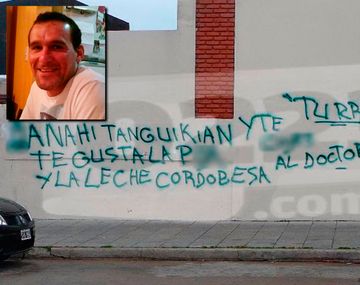 ANAHI TANGUIKIAN Y TE "TURRA
TE GUSTA LA P AL DOCTOR
Y LA LECHE CORDOBESA
.com